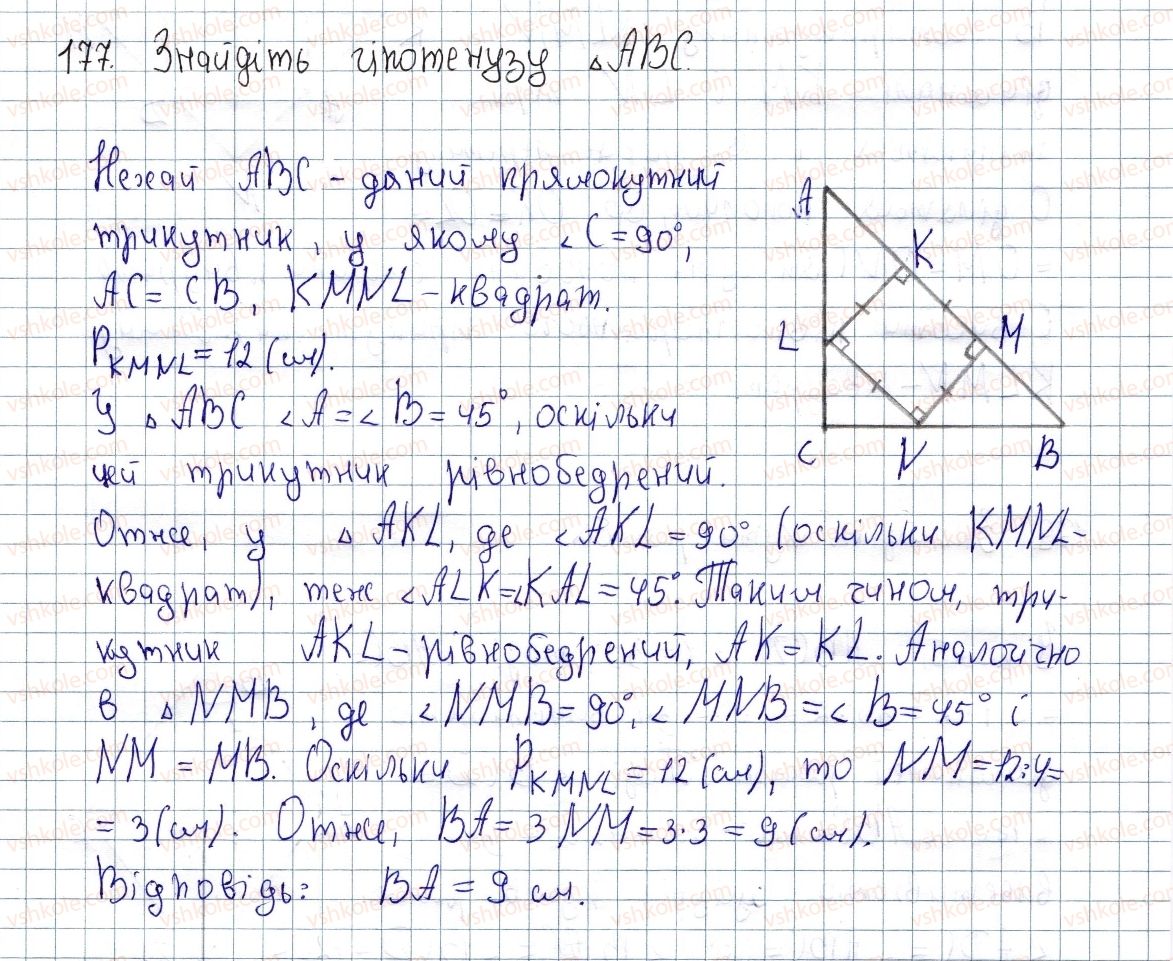 177. Знайдіть гіпотенузу △ABC.
Нехай ABC – даний прямокутний
трикутник, у якому ∠C = 90°,
AC = CB, KMNL – квадрат.
P_KMNL = 12 (см).
У △ ABC ∠A = ∠B = 45°, оскільки
цей трикутник рівнобедрений.
Отже, у △ AKL, де ∠AKL = 90° (оскільки KMNL –
квадрат), теж ∠ALK = ∠KAL = 45°. Таким чином, три-
кутник AKL – рівнобедрений, AK = KL. Аналогічно
в △ NMB, де ∠NMB = 90°, ∠MNB = ∠B = 45° і
NM = MB. Оскільки P_KMNL = 12 (см), то NM = 12:4 =
= 3 (см). Отже, BA = 3 NM = 3·3 = 9 (см).
Відповідь: BA = 9 см.
A
K
L
M
C
N
B
vshkole.com